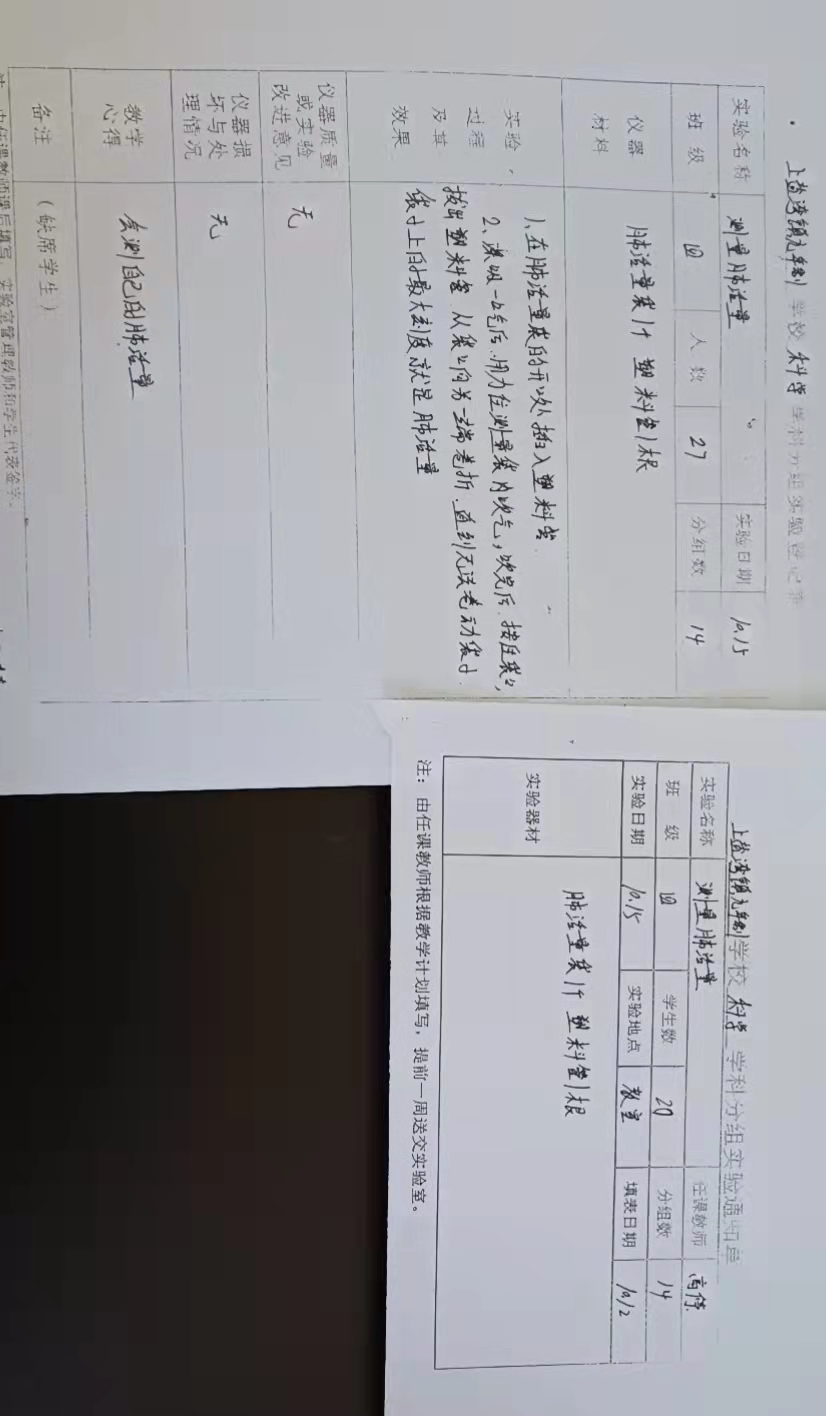 上盐湾镇九年制学校 科学 学科分组实验登记单
实验名称 测量肺活量 实验日期 10.15
班 级 四 人 数 27 分组数 14
仪器材料 肺活量袋1个 塑料管1根
实验过程及其效果
1、在肺活量袋的开口处插入塑料管.
2、深吸一口气后.用力往测量袋内吹气,吹完后.按压袋口,
拔出塑料管.从袋口向另一端卷折.直到无法卷动袋子.
袋子上的最大刻度就是肺活量
仪器质量或实验改进意见 无
仪器损坏与处理情况 无
教学心得 会测自己的肺活量
备注 (缺席学生)
注:由任课教师课后填写,实验室管理教师和学生代表签字。
上盐湾镇九年制学校 科学 学科分组实验通知单
实验名称 测量肺活量 任课教师 高
班 级 四 学生数 27 分组数 14
实验日期 10.15 实验地点 教室 填表日期 10/2
实验器材 肺活量袋1个 塑料管1根
注:由任课教师根据教学计划填写,提前一周送交实验室。